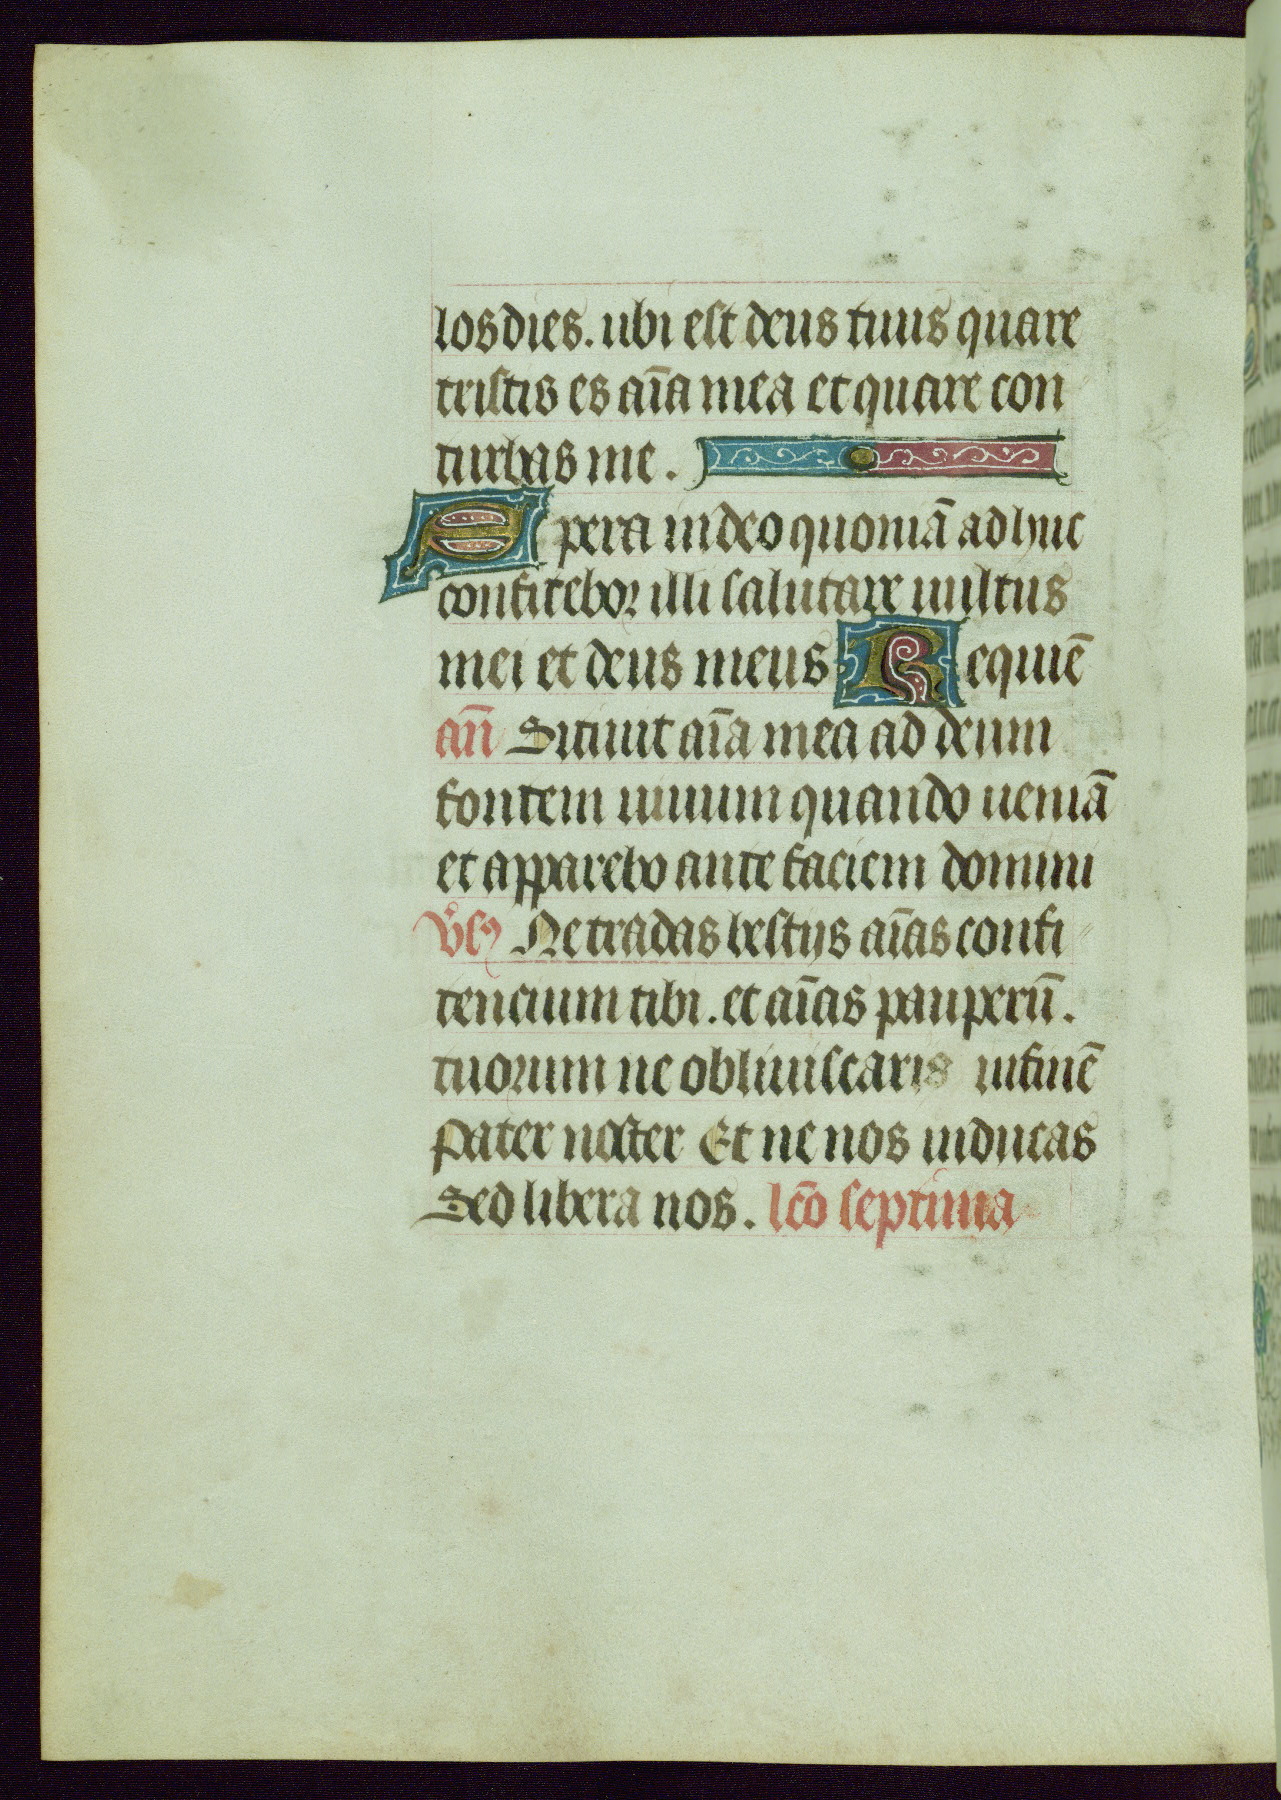 los dies. ubi est deus tuus quare
tristis es aīa mea et quare con
turbas me.
Spera in deo quoniā adhuc
confitebor illi salutare uultus
mei et deus meus Requiē
an̄ Sitiuit aīa mea ad deum
fontem uiuum quando ueniā
et apparebo ante faciem domini
Ne tradas bestijs aīas confi
tencium tibi. et aīas pauperū.
tuorum ne obliuiscaris in finē
Pater noster Et ne nos inducas
Sed libera nos. lcō septima